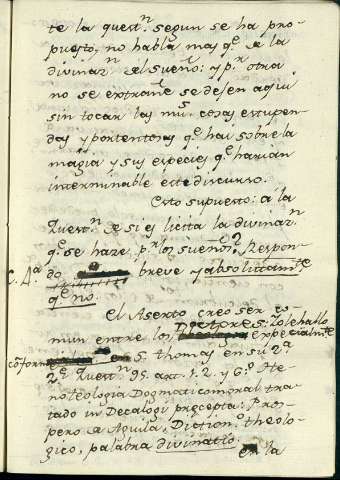 te la questn. segun se ha pro-
puesto, no habla mas qe. de la
divinarn. del sueño: y pr. otra
no se extrañe se dejen aqui
sin tocar las ms. cosas estupen-
das y portentosas qe. hai sobre la
magia y sus especies qe. harian
interminable este discurso.
Esto supuesto: á la
Questn. de si es licita la divinarn.
qe. se hace pr. los sueños? Respon-
C. 4a. do breve y absolutamte.
qe. no.
El Aserto creo ser co-
mun entre los Doctores: Yo le hallo
expecialmte.
cōforme S. thomas en su 2a.
2e. Quest. 95. art. 1. 2. y 6. Ite
no: teologia Dogmatico moral tra-
tado in Decalogi præcepta: Pros-
pero de Aguila, Diction.o theolo-
gico, palabra divinatio. en la